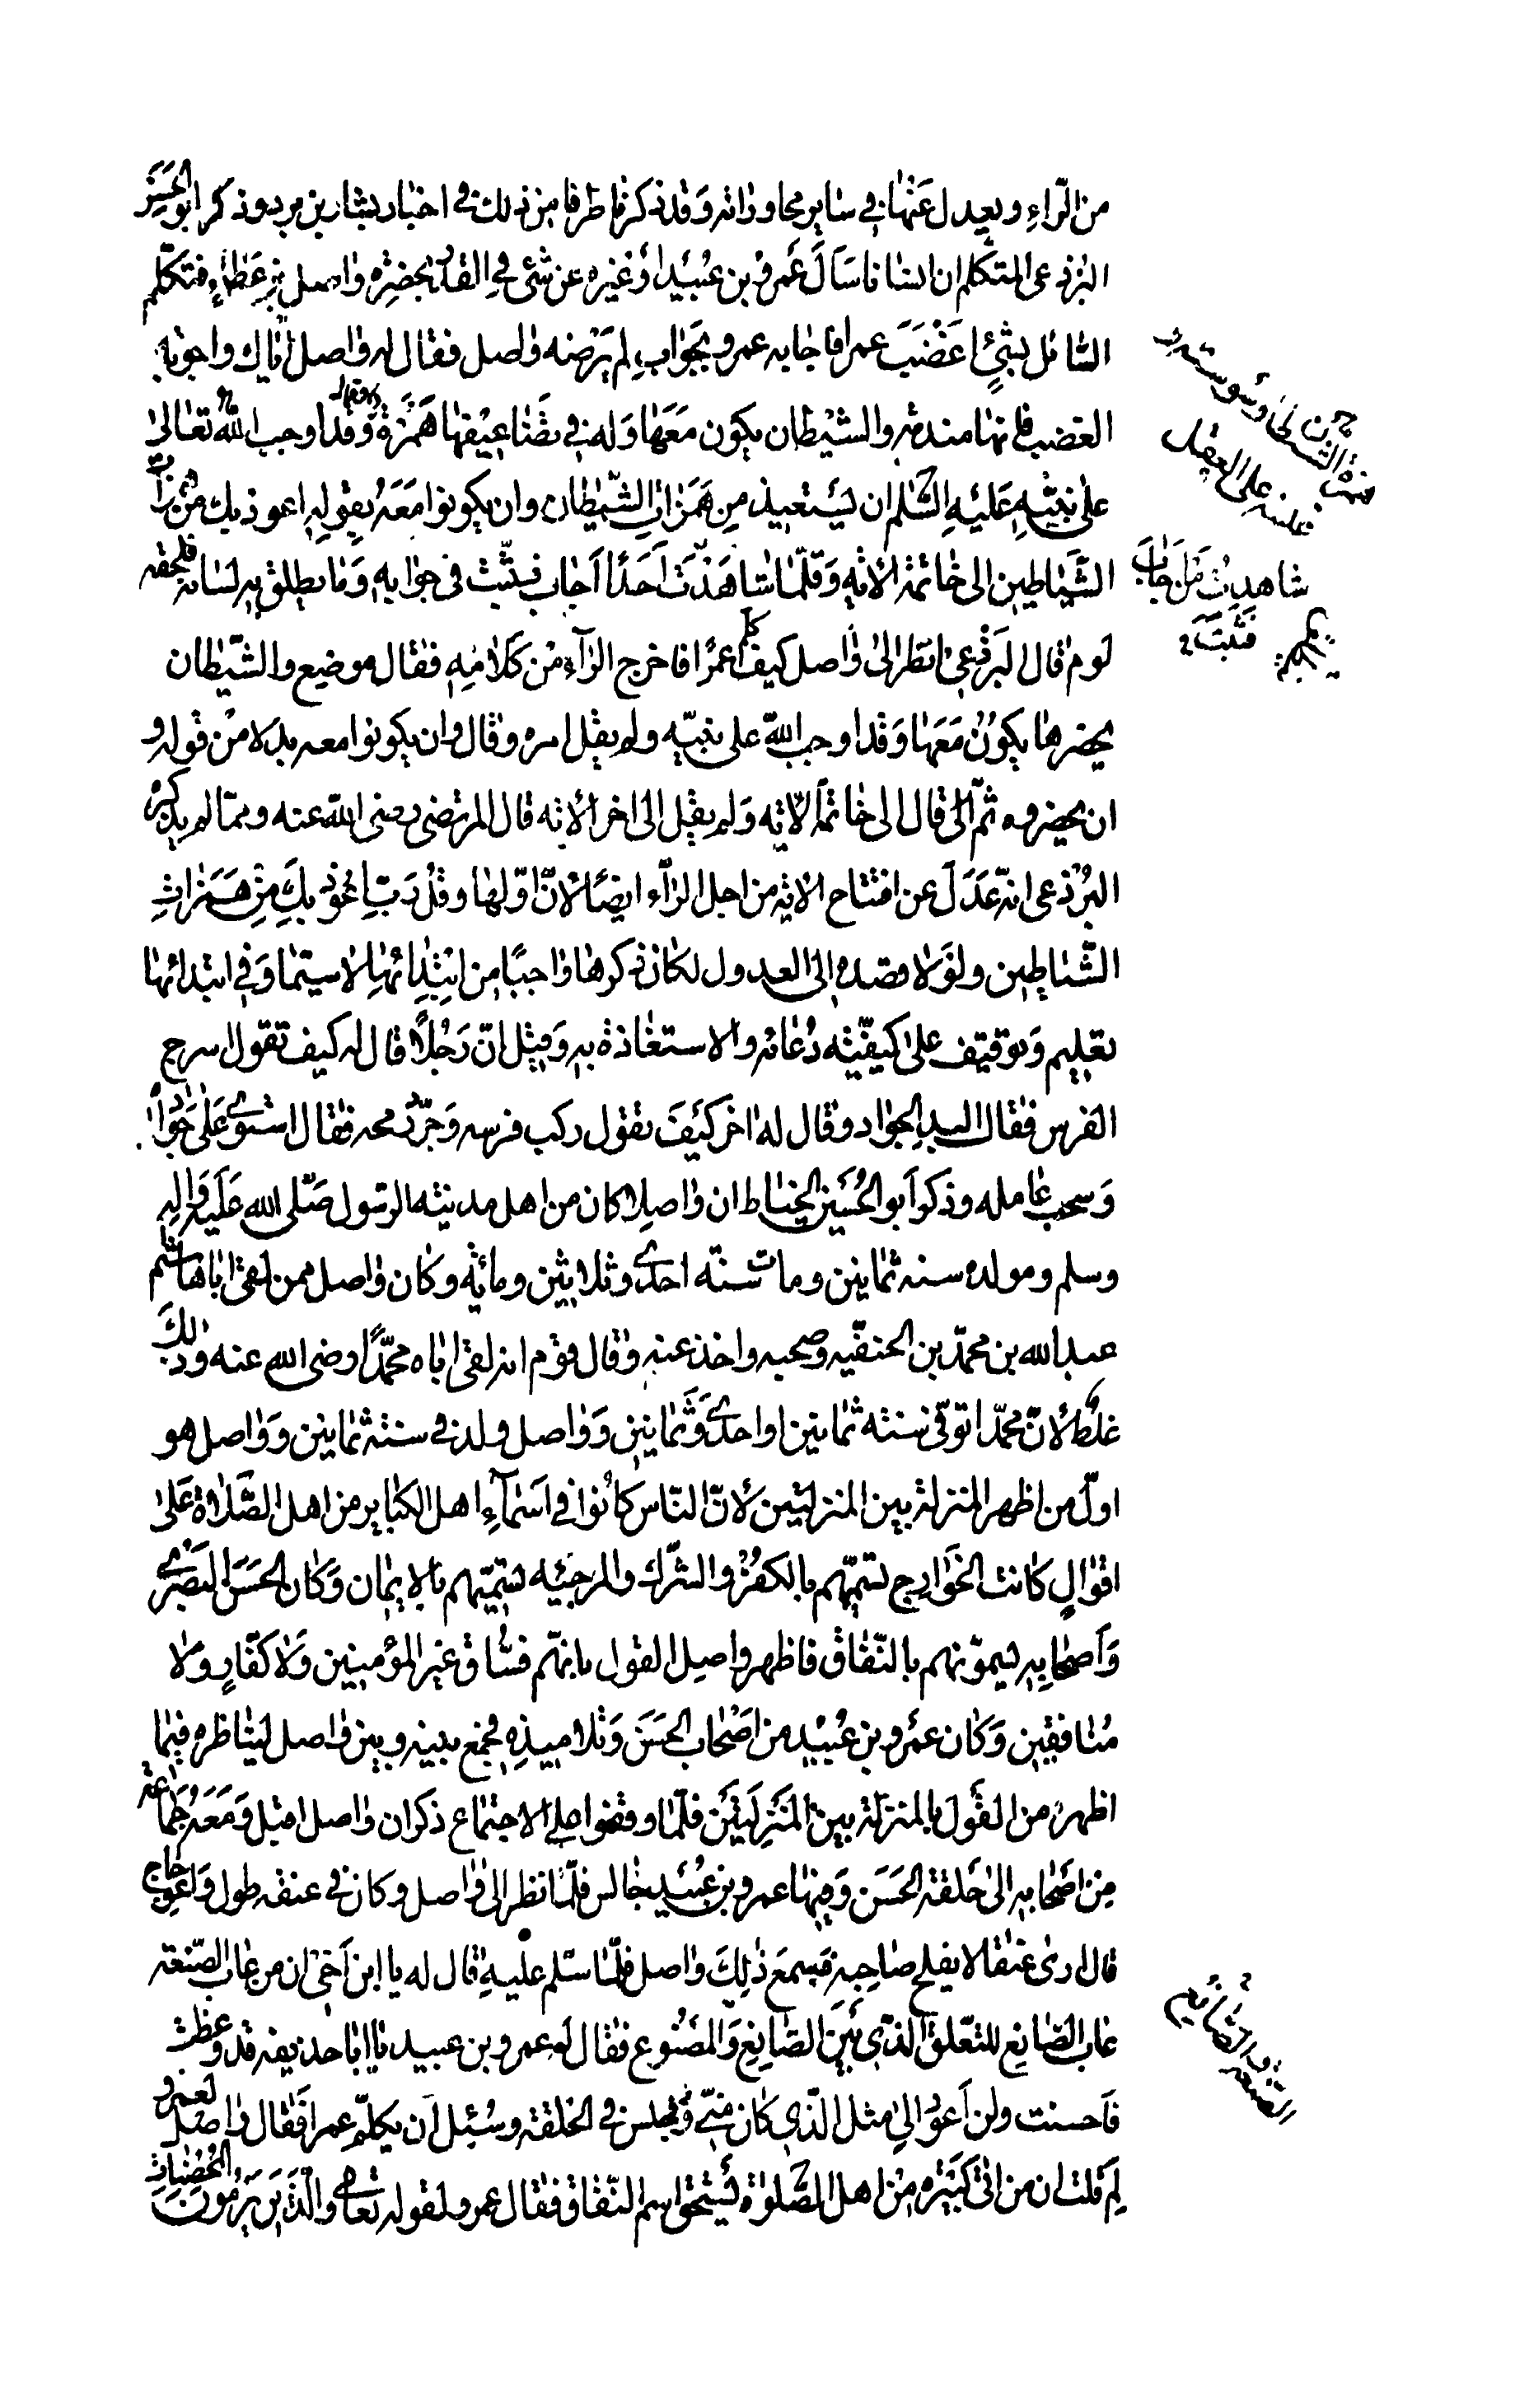 من الراءِ ويعدل عَنْها في ساير محاوراته وَقد ذكرنا طرفا من ذلك في اخبار بشار بن برد وذكر ابو الحسين
البرذعى المتكلم ان انسانا سَاَلَ عَمرو بن عُبَيْد اوْ غيره عن شئ في القدر بحضرة واصل بن عَطاءٍ فتكلّم
السّائل بشئٍ اغضَبَ عمرا فاجابه عمرو بجَوابٍ لم يَرْضه واصل فقال له واصل اياك واجوبة
الغضب فانها مندمة والشيْطان يكون مَعَها وَله في تضَاعيفها هَمَزة وَقد اوجب الله تعَالىٰ
على نبيّهِ عَليْهِ السَّلم ان يَسْتعيذ من هَمَزات الشّيٰطان وان يكونوا مَعَهُ بقولهِ اعوذ بك من همزات
الشَّيَاطين الى خاتمة الاية وَقلّما شاهَدْتَ اَحَدًا اَجاب فتثبّت فى جوابه وَما يطلق به لسانه فلحقه
لوم قال البرذعىّ انظر الىٰ واصل كيف كلم عمرًا فاخرج الرّآء منْ كَلامهِ فقال موضع والشّيطان
يحضرها يكونُ مَعَها وَقد اوجب اللّه على نبيّه ولم يقل امره وقال وان يكونوا معه بدلا منْ قوله و
ان يحضروه ثم الى قال الى خاتمة الاية وَلم يقل الى اخر الاية قال المرتضى رضى اللّه عنه وممّا لم يذكره
البرذعى انّه عَدَلَ عن افتتاح الاية من اجل الرّآء ايضًا لانّ اوّلها وقُل رَبّ اعُوذ بِكَ مِنْ هَمَزاتِ
الشّياطين ولوْلا قصده الى العدول لكان ذكرها واجبًا من ابتِدائهٰا لاسيّما وَفي ابتدائها
تعليم وَتوقيف علىٰ كيفيّة دُعائه والاستعاذة به وَقيل انّ رَجُلاً قال له كيف تقول اسرج
الفرس فقال البد الجواد وقال له اخر كيْفَ تقول ركب فرسه وَجرّ رمحه فقال استوى عَلى جَواده
وَسحب عامله وذكر اَبو الحُسَين الخياط ان واصلا كان من اهل مدينة الرسول صَلّى الله عَلَيه وَاله
وسلم ومولده سنة ثمانين ومات سنة احدى وثلاثين ومائة وكان واصل ممن لقى ابا هاشم
عبد الله بن محمّد بن الحنفيّه وصحبه واخذ عنه وقال قوم انه لقى اباه محمّدًا رضى الله عنه وَذلكَ
غلط لانّ محمّدا توفى سنة ثمانين او احدى وَثَمانين وَواصل ولد في سنة ثمانين وَواصل هو
اولّ من اظهر المنزلة بين المنزلتين لانّ النّاس كانُوا في اسَمآءِ اهل الكبائر من اهل الصَّلاة عَلىٰ
اقوالٍ كانت الخَوارج تسمّيهم بالكفر والشرك والمرجئه تسمّيهم بالايمان وَكان الحَسَن البَصْرى
وَاَصحابه يسمّونهم بالنّفاق فاظهر واصل القول بانهّم فسّاق غير المؤمنين وَلا كفّارٍ وَلا
مُنافقين وَكان عمَرو بن عُبيْد من اصْحاب الحَسَن وَتلاميذه فجُمع بينه وبين واصل ليناظره فيما
اظهر من القَول بالمنزلة بين المَنزِلَتَين فلَمّا وقفوا على الاجتماع ذكر ان واصل اقبل وَمَعَه جَماعة
مِن اصَحابه الىٰ حَلقة الحَسَن وَفيها عمرو بن عُبَيد جالس فلمّا نظر الىٰ واصل وكان في عنقه طول وَاعوجاج
قال ارىٰ عنقا لا يفلح صاحبه فَسمعَ ذلِكَ واصل فلمّا سَلم عليهِ قال له يا ابن اَخى ان من عاب الصّنعة
عاب الصّانع للتعلّق الّذى بَين الصّانِع وَالمصَنُوع فقال لهُ عمرو بن عبيد يا ابا حذيفه قد وعظت
فاحسنت ولن اَعودَ الىٰ مثل الّذى كان منّى وَجلس في الحلقة وسُئل ان يكلّم عمرا فَقال واصل لعمرو
لِمَ قلت ان من اتىٰ كَبيَرة من اهل الصَّلوٰة يَستحق اسم النّفاق فقال عمرو لقوله تعالى والّذين يَرمُون المُحْصَناتِ
شاهدتُ مَنْ اَجابَ
فتثَبّتَ
الصنعة والصّانع